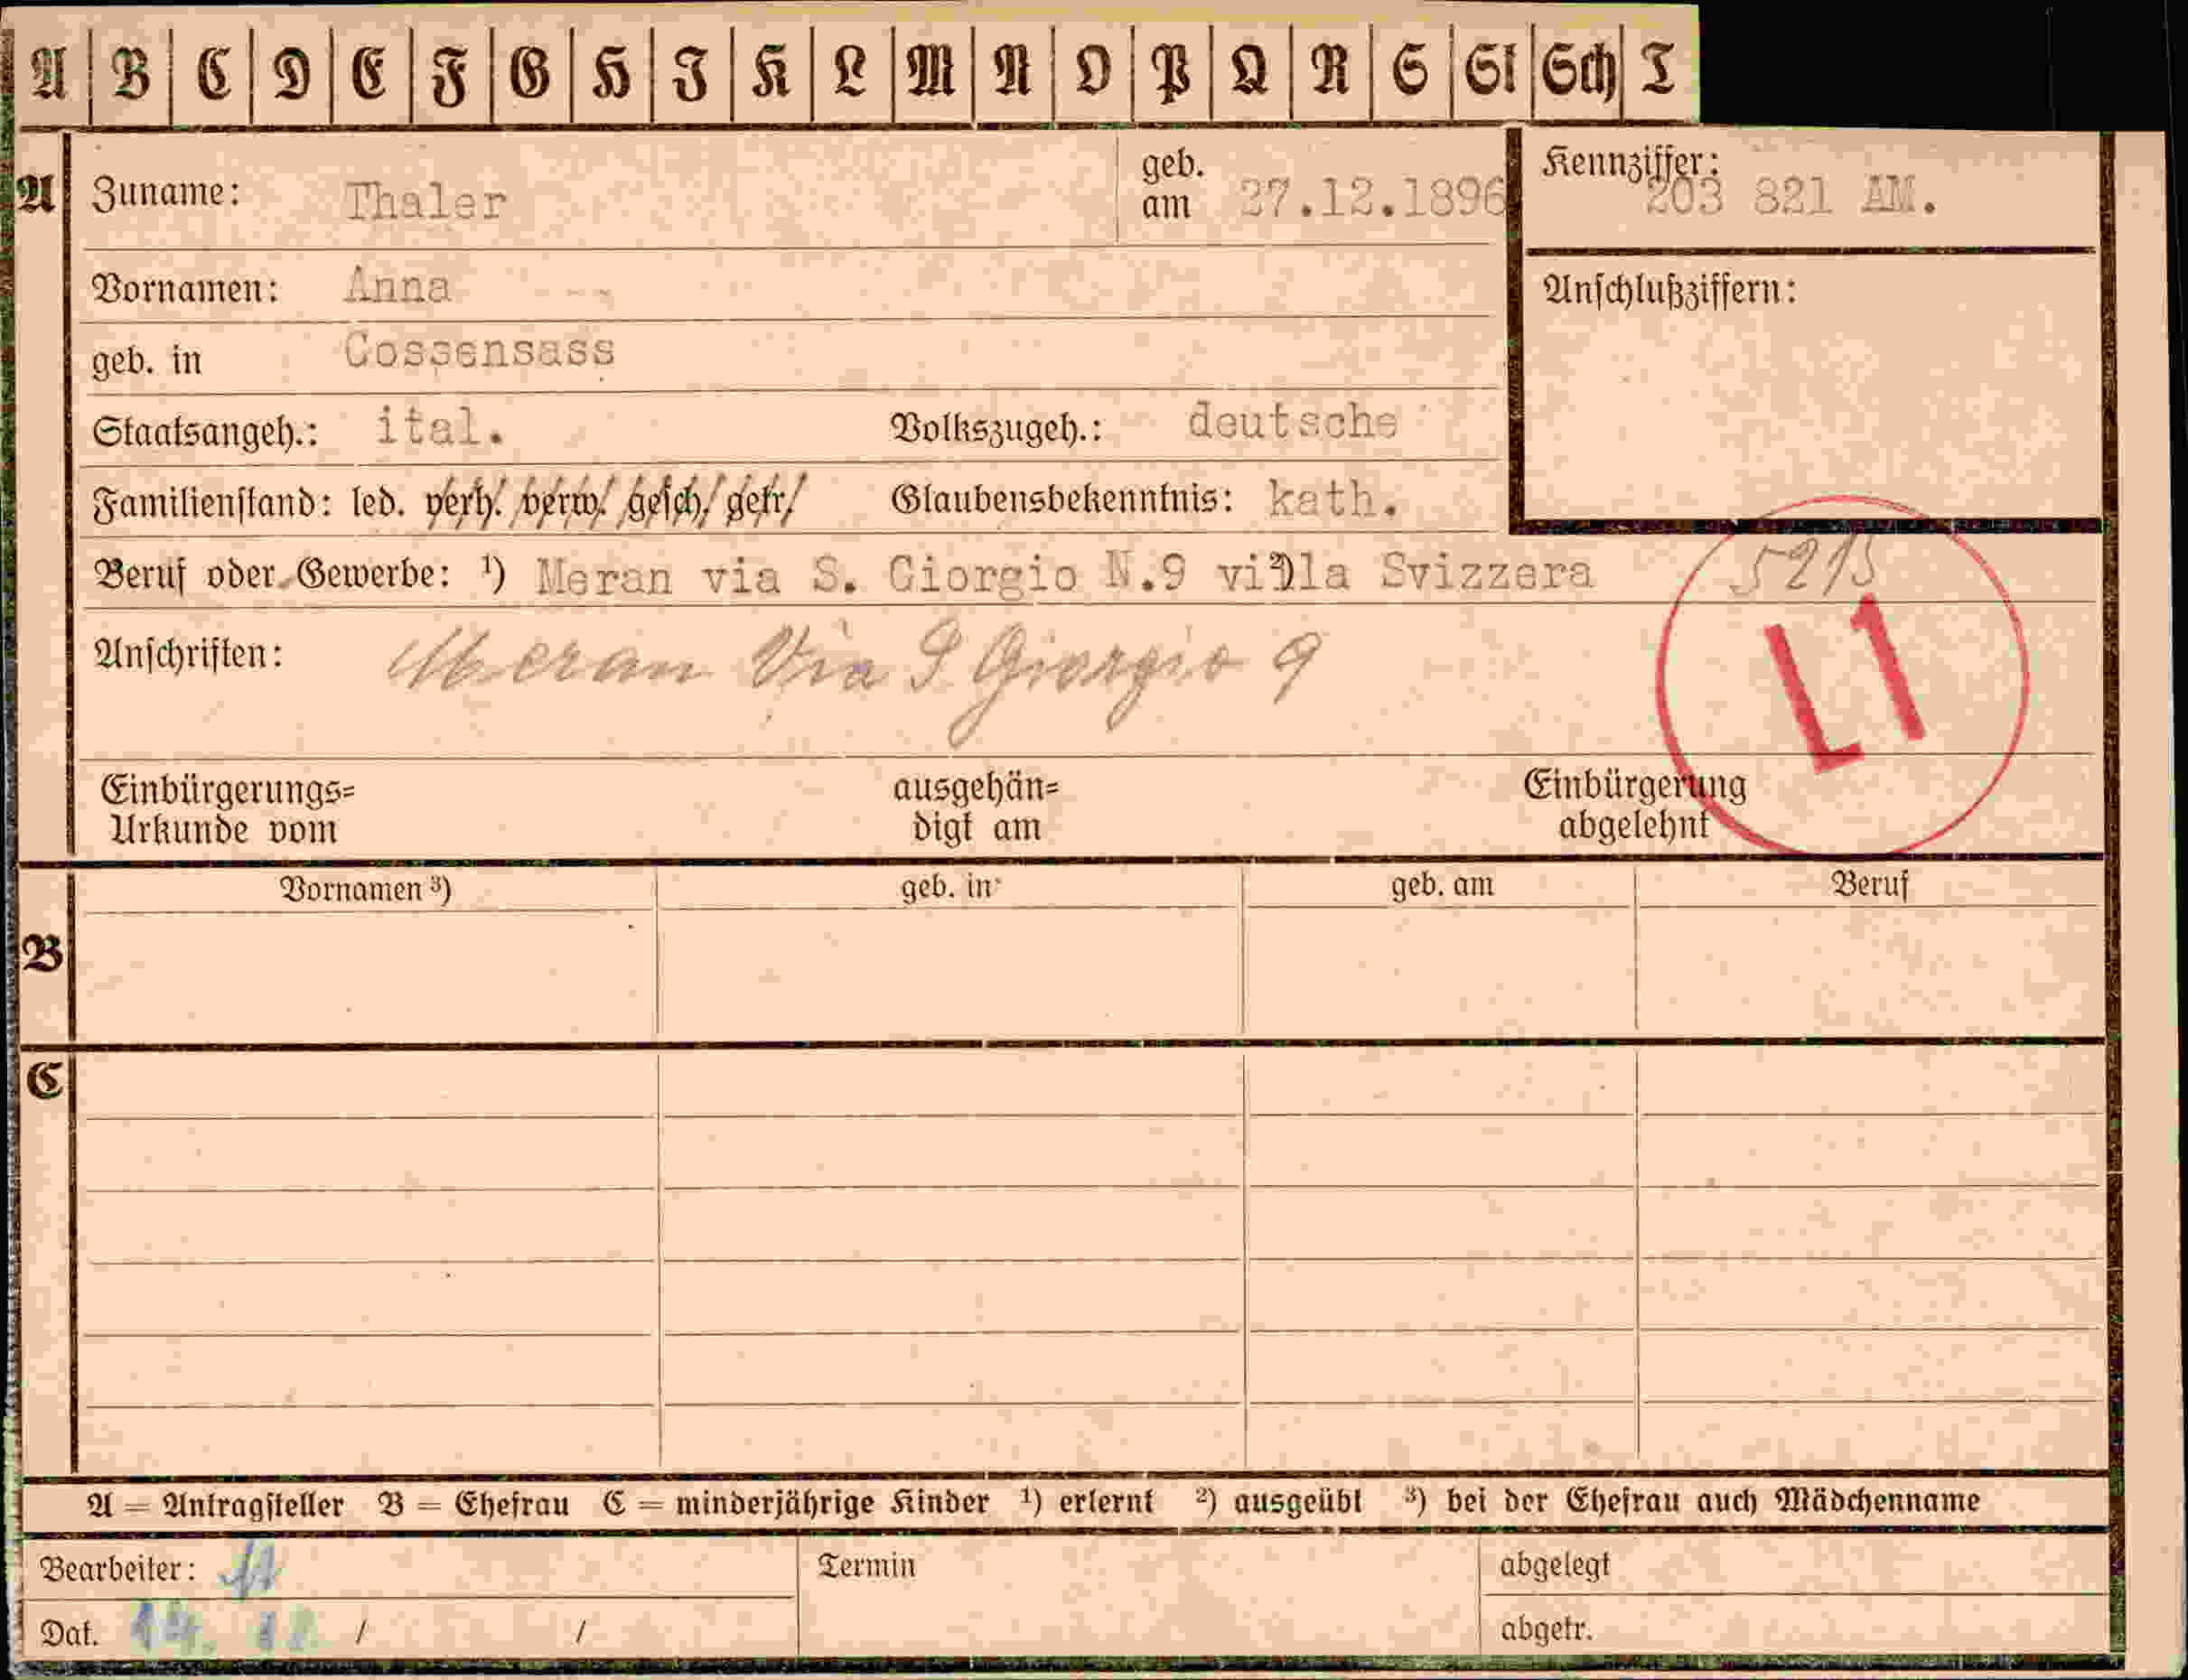 A B C D E F G H I K L M N O P Q R S St Sch T
A Zuname: Thaler geb. am 27.12.1896 Kennziffer: 203 821 AM.
Vornamen: Anna -- Anschlußziffern:
geb. in Gossensass
Staatsangeh.: ital. Volkszugeh.: deutsche
Familienstand: led. verh. verw. gesch. getr. Glaubensbekenntnis: kath.
Beruf oder Gewerbe: ¹) Meran via S. Giorgio N.9 villa Svizzera ²) 5215
Anschriften: Meran Via S Giorgio 9 L1
Einbürgerungs= ausgehän= Einbürgerung
Urkunde vom digt am abgelehnt
Vornamen ³) geb. in geb. am Beruf
B
C
A = Antragsteller B = Ehefrau C = minderjährige Kinder ¹) erlernt ²) ausgeübt ³) bei der Ehefrau auch Mädchenname
Bearbeiter: Termin abgelegt
Dat. 14. / / abgetr.